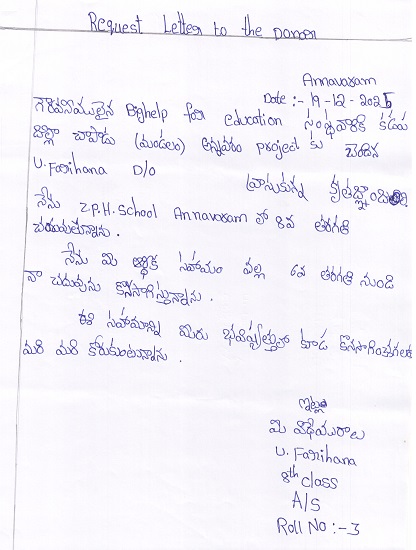 Request Letter to the Donor
Annavaram
Date :- 19-12-2025
గౌరవనీయులైన Bighelp for education సంస్థవారికి కడప
జిల్లా చాపాడు (మండలం) అన్నవరం project కు చెందిన
U. Farihana D/o
వ్రాసుకున్న కృతజ్ఞతాంజలి
నేను Z.P.H. School Annavaram లో 8వ తరగతి
చదువుతున్నాను.
నేను మి ఆర్థిక సహాయం వల్ల 6వ తరగతి నుండి
నా చదువును కొనసాగిస్తున్నాను.
ఈ సహాయాన్ని మీరు భవిష్యత్తులో కూడ కొనసాగించగలరని
మరి మరి కోరుకుంటున్నాను.
ఇట్లు
మి విధేయురాలు
U. Farihana
8th class
A/S
Roll No :- 3